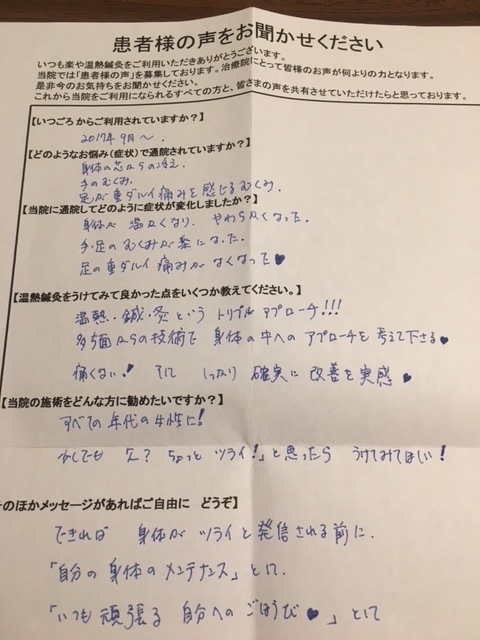 患者様の声をお聞かせください
いつも楽や温熱鍼灸をご利用いただきありがとうございます。
当院では「患者様の声」を募集しております。治療院にとって皆様のお声が何よりの力となります。
是非今のお気持ちをお聞かせください。
これから当院をご利用になられるすべての方と、皆さまの声を共有させていただけたらと思っております。
【いつごろ からご利用されていますか？】
2017年9月～.
【どのようなお悩み（症状）で通院されていますか？】
身体の芯からの冷え.
手のむくみ.
足が重ダルイ痛みを感じるむくみ.
【当院に通院してどのように症状が変化しましたか？】
身体が 温かくなり、やわらかくなった。
手・足のむくみが楽になった.
足の重ダルイ 痛みがなくなった♥
【温熱鍼灸をうけてみて良かった点をいくつか教えてください。】
温熱・鍼・灸という トリプル アプローチ!!!
多方面からの技術で 身体の中への アプローチを 考えて下さる♥
痛くない! そして しっかり 確実に 改善を実感 ♥
【当院の施術をどんな方に勧めたいですか？】
すべての年代の女性に!
少しでも ん? ちょっと ツライ!」と思ったら うけてみてほしい!
のほかメッセージがあればご自由に どうぞ】
できれば 身体が ツライと発信される前に.
「自分の身体のメンテナンス」として.
「いつも頑張る 自分へのごほうび♥」として